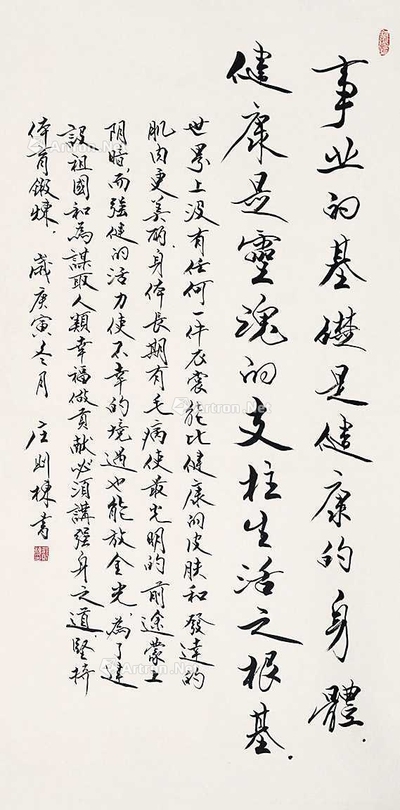 事业的基礎是健康的身體.
健康是靈魂的支柱生活之根基.
世界上没有任何一件衣裳能比健康的皮肤和發達的
肌肉更美丽.身体長期有毛病使最光明的前途蒙上
阴暗,而强健的活力使不幸的境遇也能放金光,為了建
設祖國和為謀取人類幸福做貢献必須講强身之道,堅持
体育鍛煉. 歲庚寅冬月 庄则棟書
Artron.Net